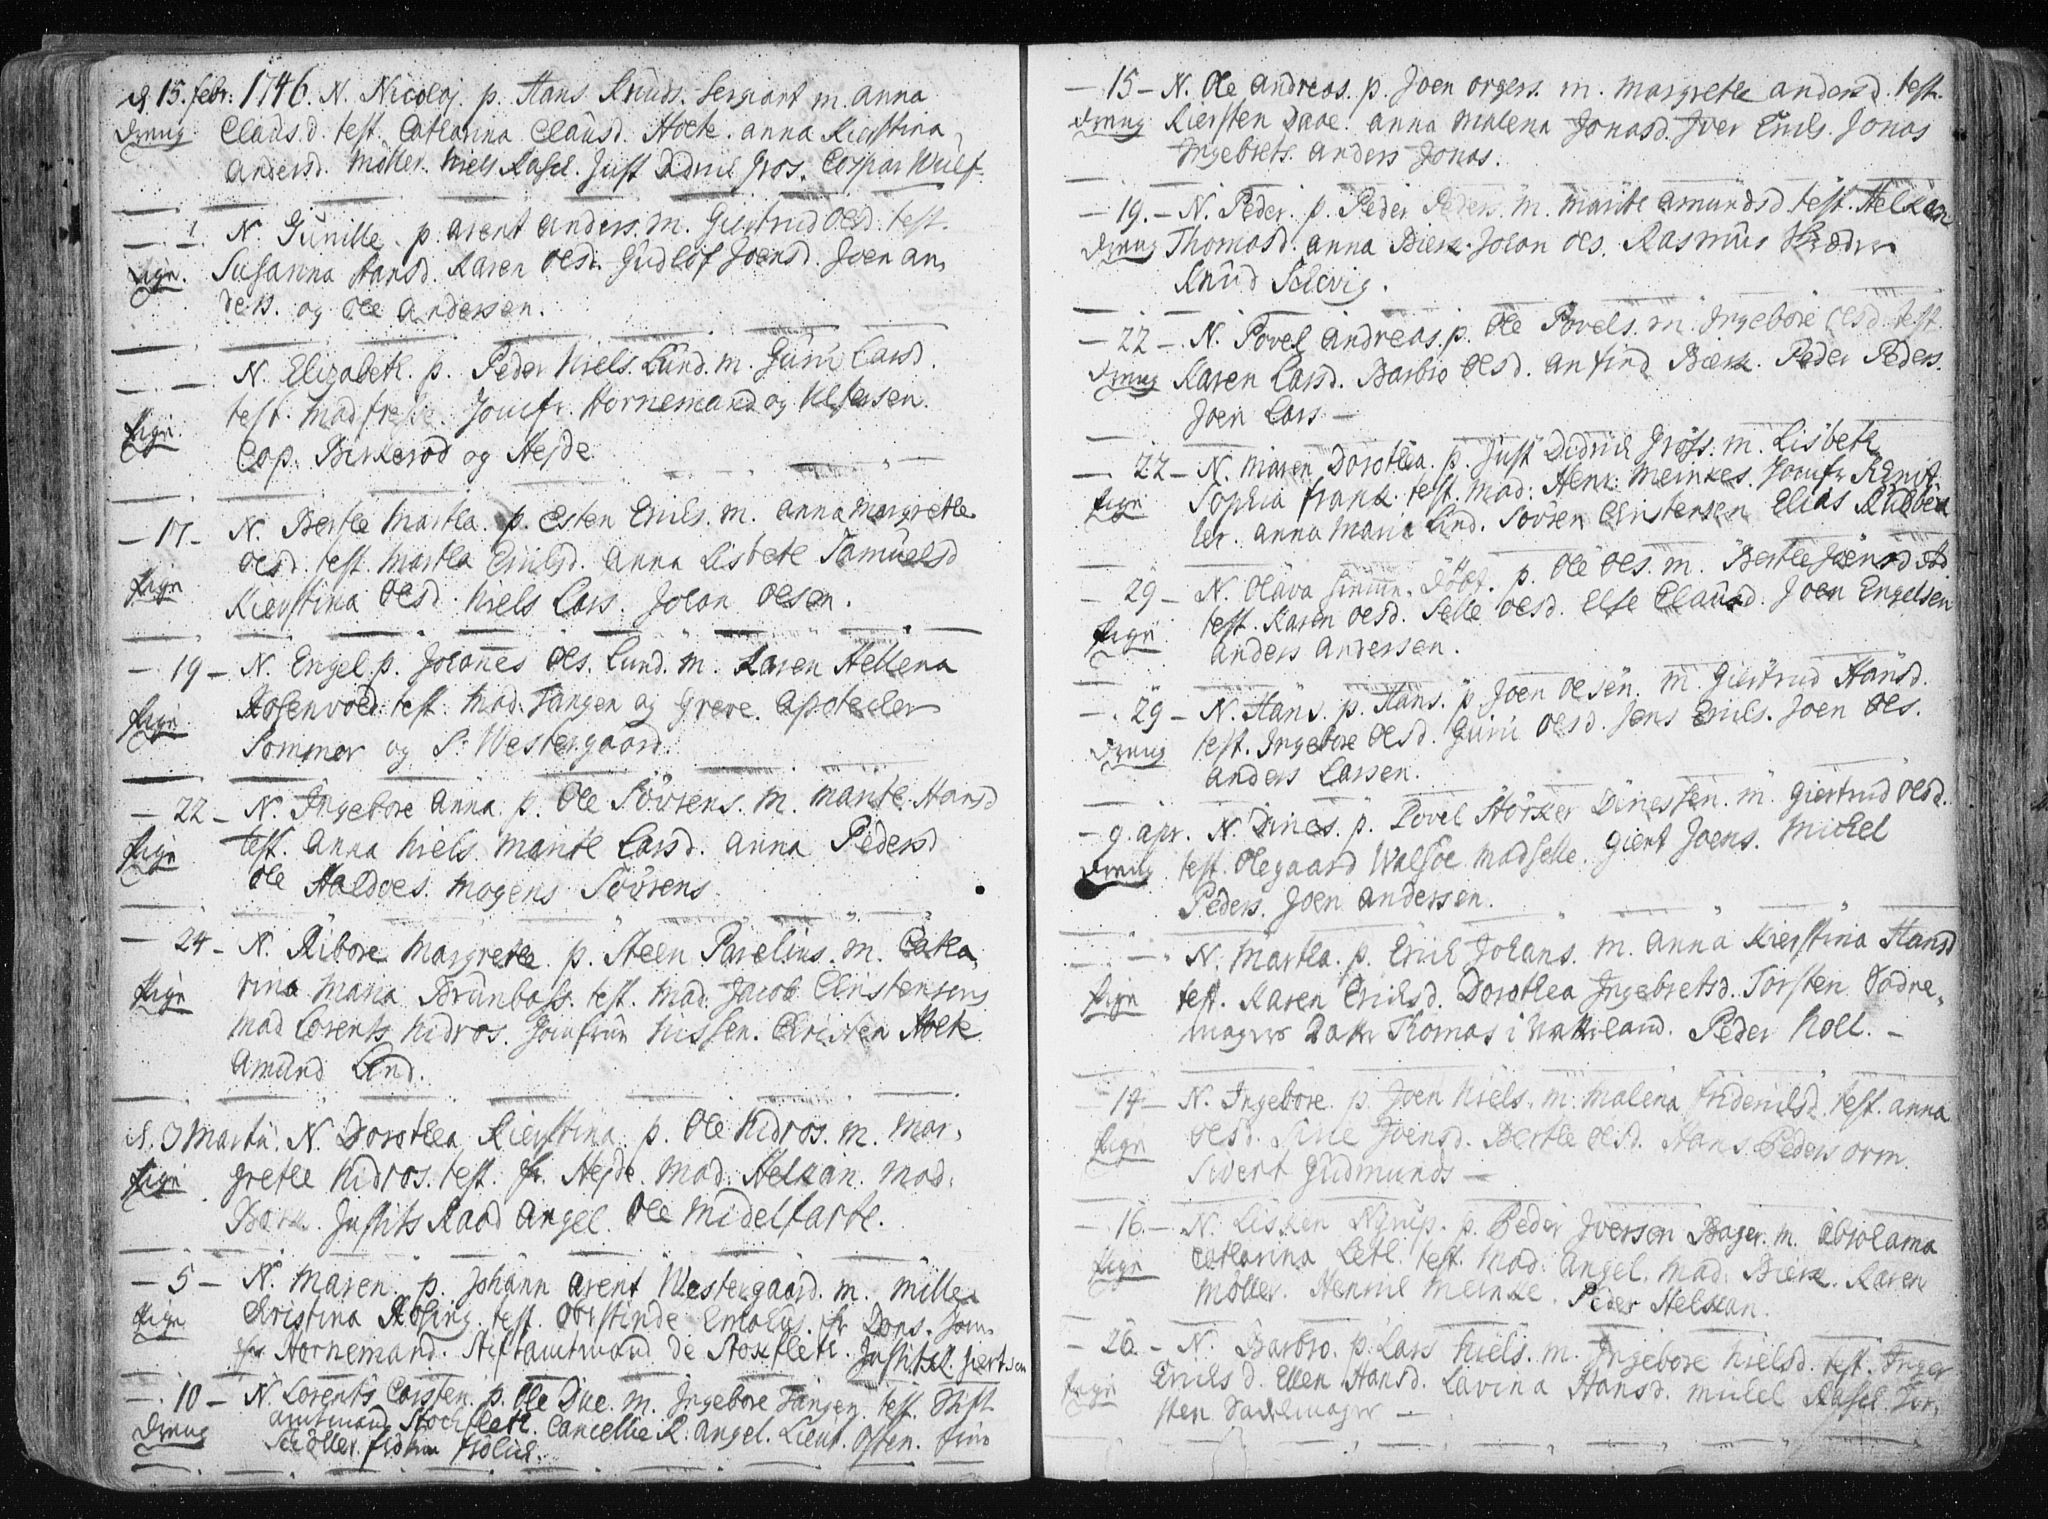 d. 15. febr: 1746. N. Nicolaj. p. Hans Knuds. Sergiant m. anna
Dreng Claus.d. test. Catharina Clausd. Holte. anna Kierstina
Andersd. Möller. Niels Rafel. Just Didrik Gros. Caspar Wulf.
N. Gunille. p. arent anders. m. Giertrud olsd. test.
Pige. Susanna Hansd. Karen olsd. Gudlof Joensd. Joen an
ders. og Ole Andersen.
N. Elizabeth. p. Peder Niels. Lund. m. Guru Larsd.
test. mad. Jomfr. Hornemand og
Pige. Cap. Birkerod og Hejde
- 17 - N. Berte Martha. p. Esten Erichs. m. anna Margrethe
olsd. test. martha Erichsd. anna Lisbeth Samuelsd
Pige Kierstina olsd. Niels Lars. Johan olsen.
- 19 - N. Engel. p. Johannes ols. Lund. m. Karen Hellena
test. mad. Tangen og Greve. apoteker
Pige Sommer og S: Westergaard.
- 22 - N. Ingebore anna. p. Ole Sörens. m. marite Hansd
Pige test. anna Niels. marite Larsd. anna Pedersd
Ole Haldoes. mogens Sörens
- 24 - N. Ribore Margrethe. p. Steen Parelius. m. Catha
Pige rina maria Brunbass. test. mad. Jacob Christensens
mad Lorents Nidros. Jomfrue Nissen. Christen Holte
Amund Lind.
d. 3 Martii. N. Dorothea Kierstina. p. Ole Nidros. m. mar
Pige grethe Nidros. test. fr. Hejde. mad. Helkan. mad.
Justits Raad Angel. Ole Midelfarth.
- 5 - N. Maren. p. Johann arent Westergaard. m. mille
Pige Christina Röling. test. fr Dons. Jom
fr Hornemand. Stiftamtmand de Stockfleth. Justitsr.
- 10 - N. Lorents Carsten. p. Ole Due. m. Ingebore Tangen. test. Stift
Dreng amtmand Stockfleth. Cancellie R. Angel. Lieut. Osten. frue
Schöller. fröken Frölich.
- 15 - N. Ole andreas. p. Joen orgers. m. margrethe andersd. test.
Dreng Kiersten Daae. anna malena Jonasd. Iver Erichs. Jonas
Ingebrets. anders Jonas.
- 19. - N. Peder. p. Peder Peders. m. marite amundsd test. Helkan
Dreng Thomasd. anna Bierk. Johan ols. Rasmus
Knud Solevig.
- 22 - N. Povel andreas. p. Ole Povels. m. Ingebore olsd. test.
Dreng Karen Larsd. Barbro olsd. anfind Bierk. Peder Peders.
Joen Lars -
- 22 - N. maren Dorothea. p. Just Didrick Gröss. m. Lisbeth
Pige Sophia frank. test. mad. Henr: Meinkes. Jomfr
ler. anna maria Lind. Sövren Christensen Elias
- 29 - N. Olava p. Ole ols. m. Berthe Joensd
Pige test. Karen olsd. Selle olsd. Else Clausd. Joen Engelsen
anders andersen.
- 29 - N. Hans. p. Hans. p Joen olsen. m Giertrud Hansd.
Dreng test. Ingebore olsd. Guru olsd. Jens Erichs. Joen ols.
anders Larsen.
- 9. apr. N. Dines. p. Povel Störker Dinessen. m. Giertrud olsd.
Dreng test. Olegaard Walsöe madselle. Giert Joens. Michel
Peders. Joen andersen.
N. Martha. p. Erich Johans. m. anna Kierstina Hansd
Pige test. Karen Erichsd. Dorothea Ingebretsd. Torsten Sadre
mager Thomas i Peder Noll. -
- 14 - N. Ingebore. p. Joen Niels. m. malena friderichsd. test. anna
Pige olsd. Sille Joensd. Berthe olsd. Hans Peders orm.
Sivert Gudmunds -
- 16. - N. Lisken Nyrup. p. Peder Iversen Bager. m. abolama
Pige catharina Leth. test. mad. Angel. mad. Bierk. Karen
Möller. Henrik Meinke. Peder Helkan.
- 26 - N. Barbro. p. Lars Niels. m. Ingebore Nielsd. test. Inger
Pige Erichsd. Ellen Hansd. Lavina Hansd. michel Rafel. Tor
sten Sadelmager -